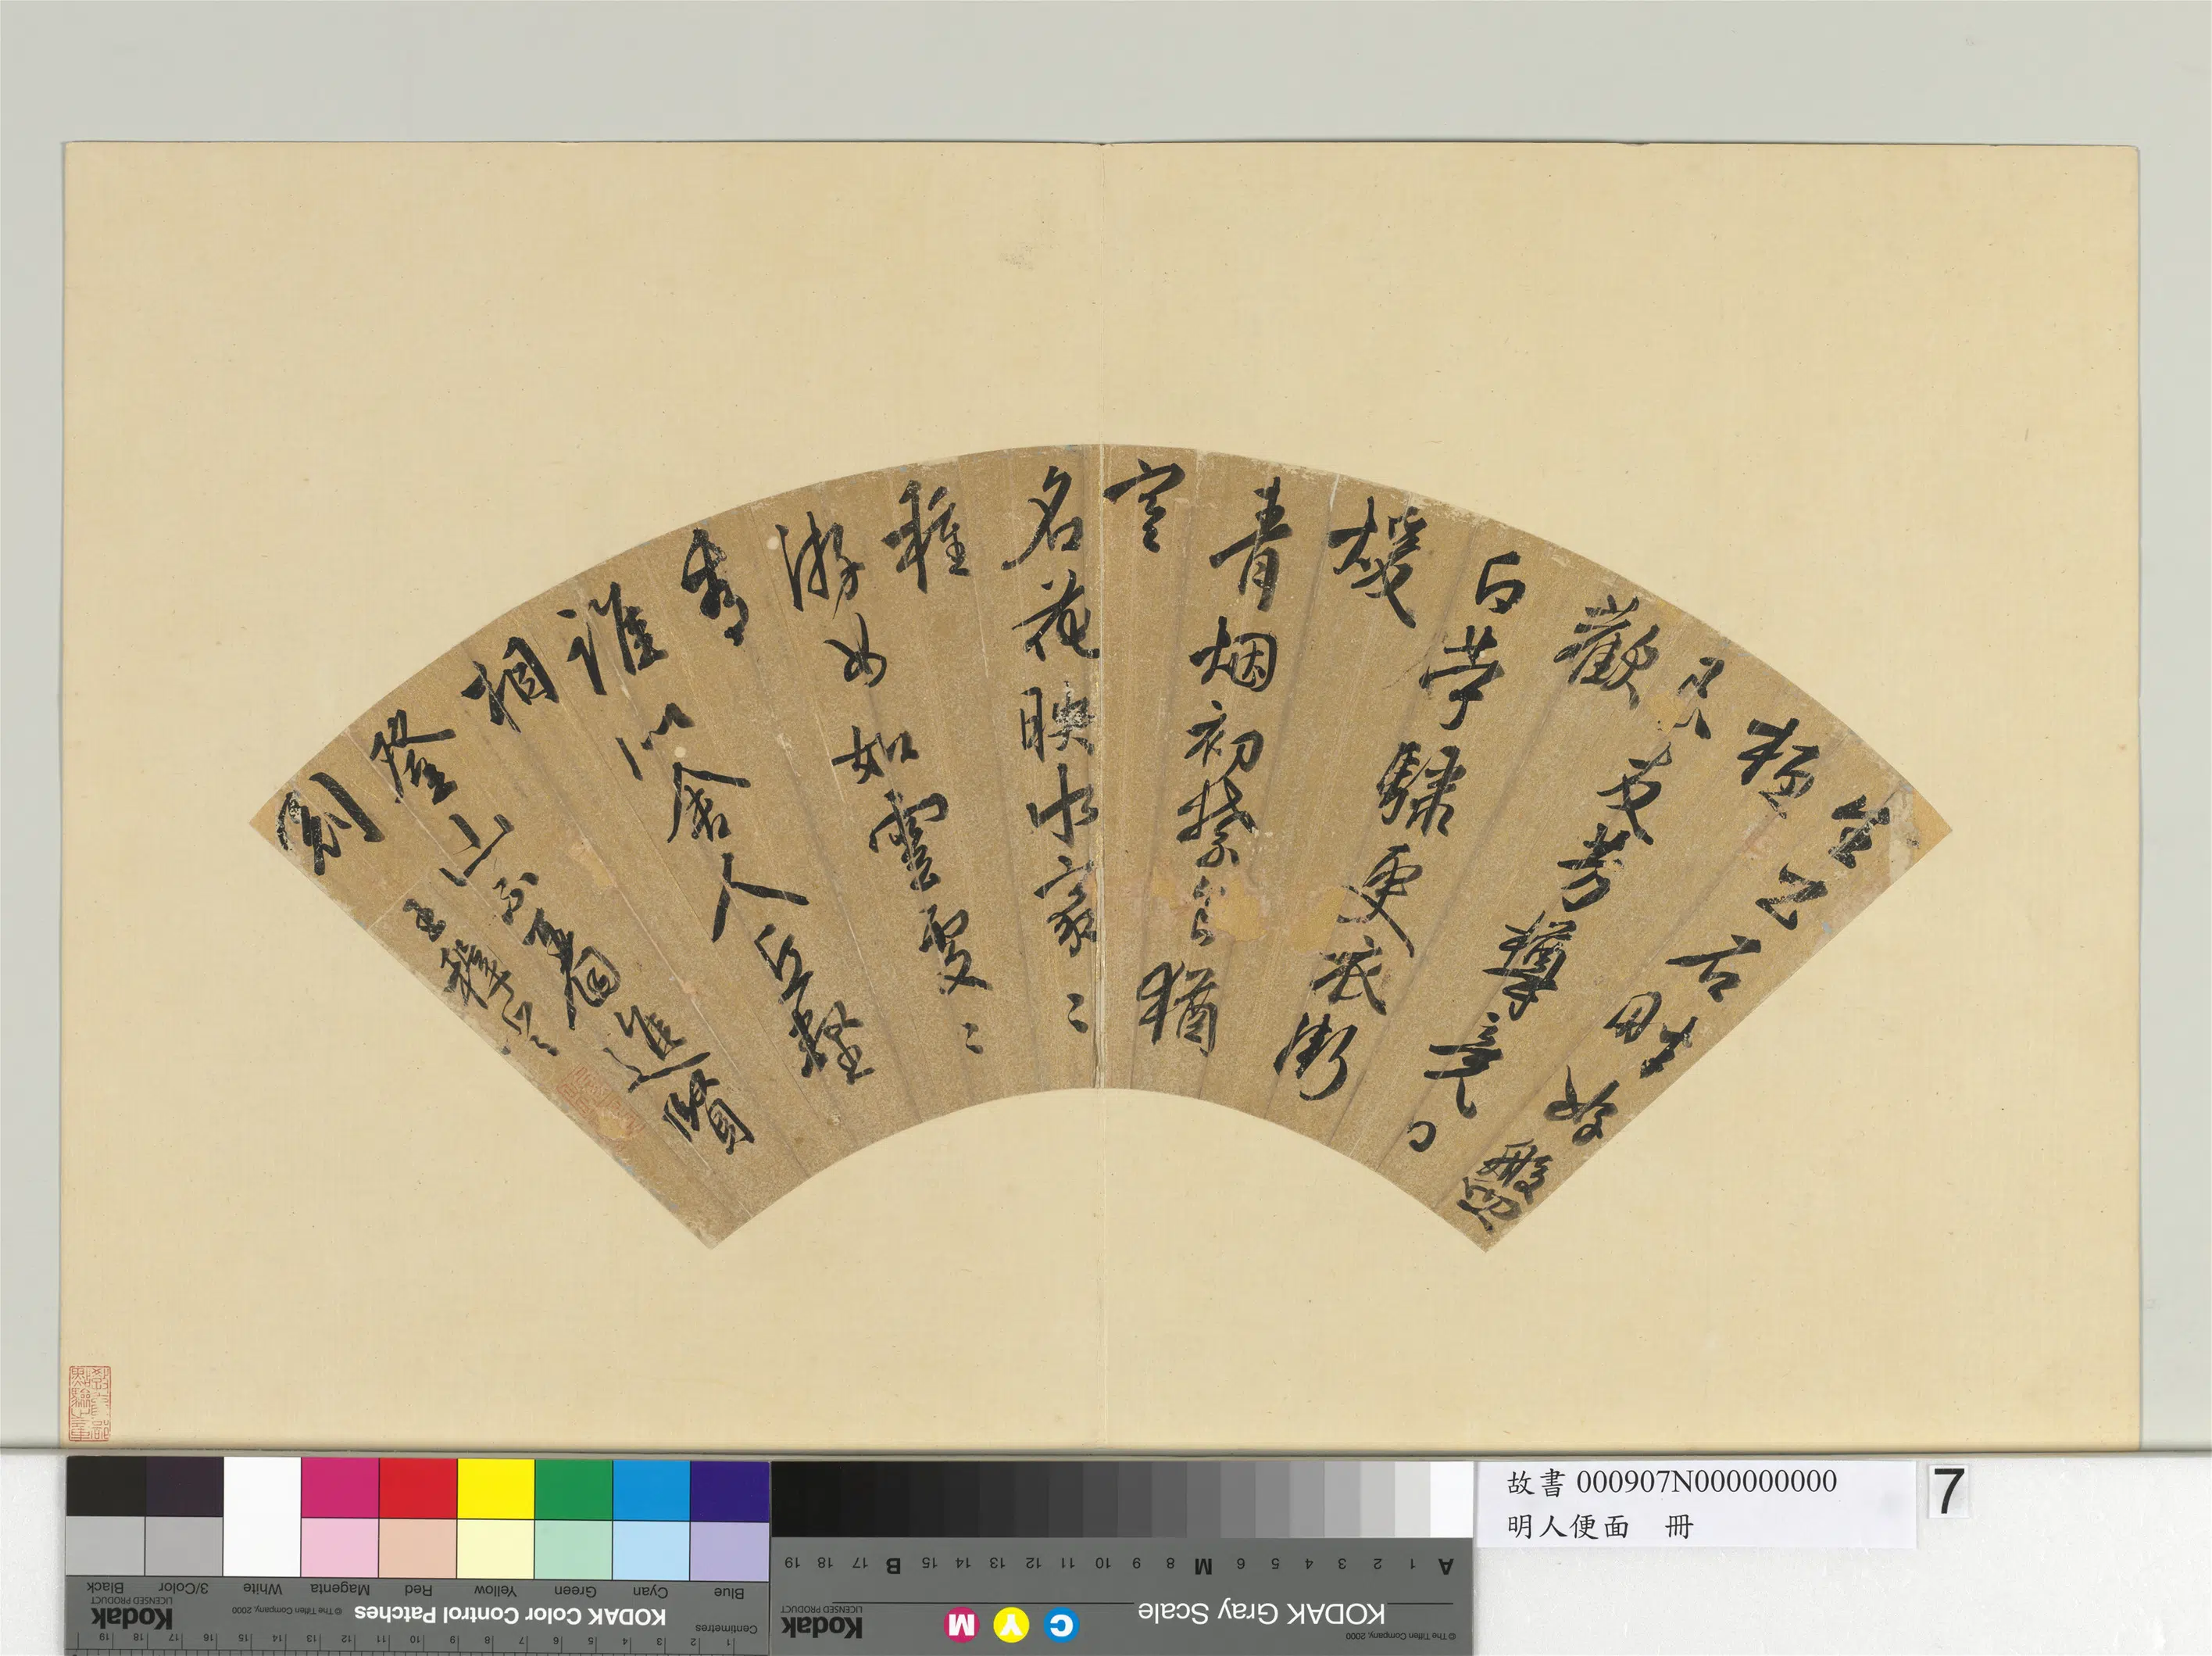 生公石畔好盤
桓
芳樽竟日
歡
白苧驌更衣漸
煖
青烟初禁食猶
寒
名花映水家〻
種
游女如雲處〻
看
誰似舍人丘壑
相
登山不著進賢
冠
王穉登
故書 000907N000000000
明人便面 冊
7
Blue Cyan Green Yellow Red Magenta White 3/Color Black
KODAK Color Control Patches
© The Tiffen Company, 2000
Kodak
LICENSED PRODUCT
Centimetres
1 2 3 4 5 6 7 8 9 10 11 12 13 14 15 16 17 18 19
A 1 2 3 4 5 6 M 8 9 10 11 12 13 14 15 B 17 18 19
KODAK Gray Scale
C Y M
Kodak
LICENSED PRODUCT
© The Tiffen Company, 2000